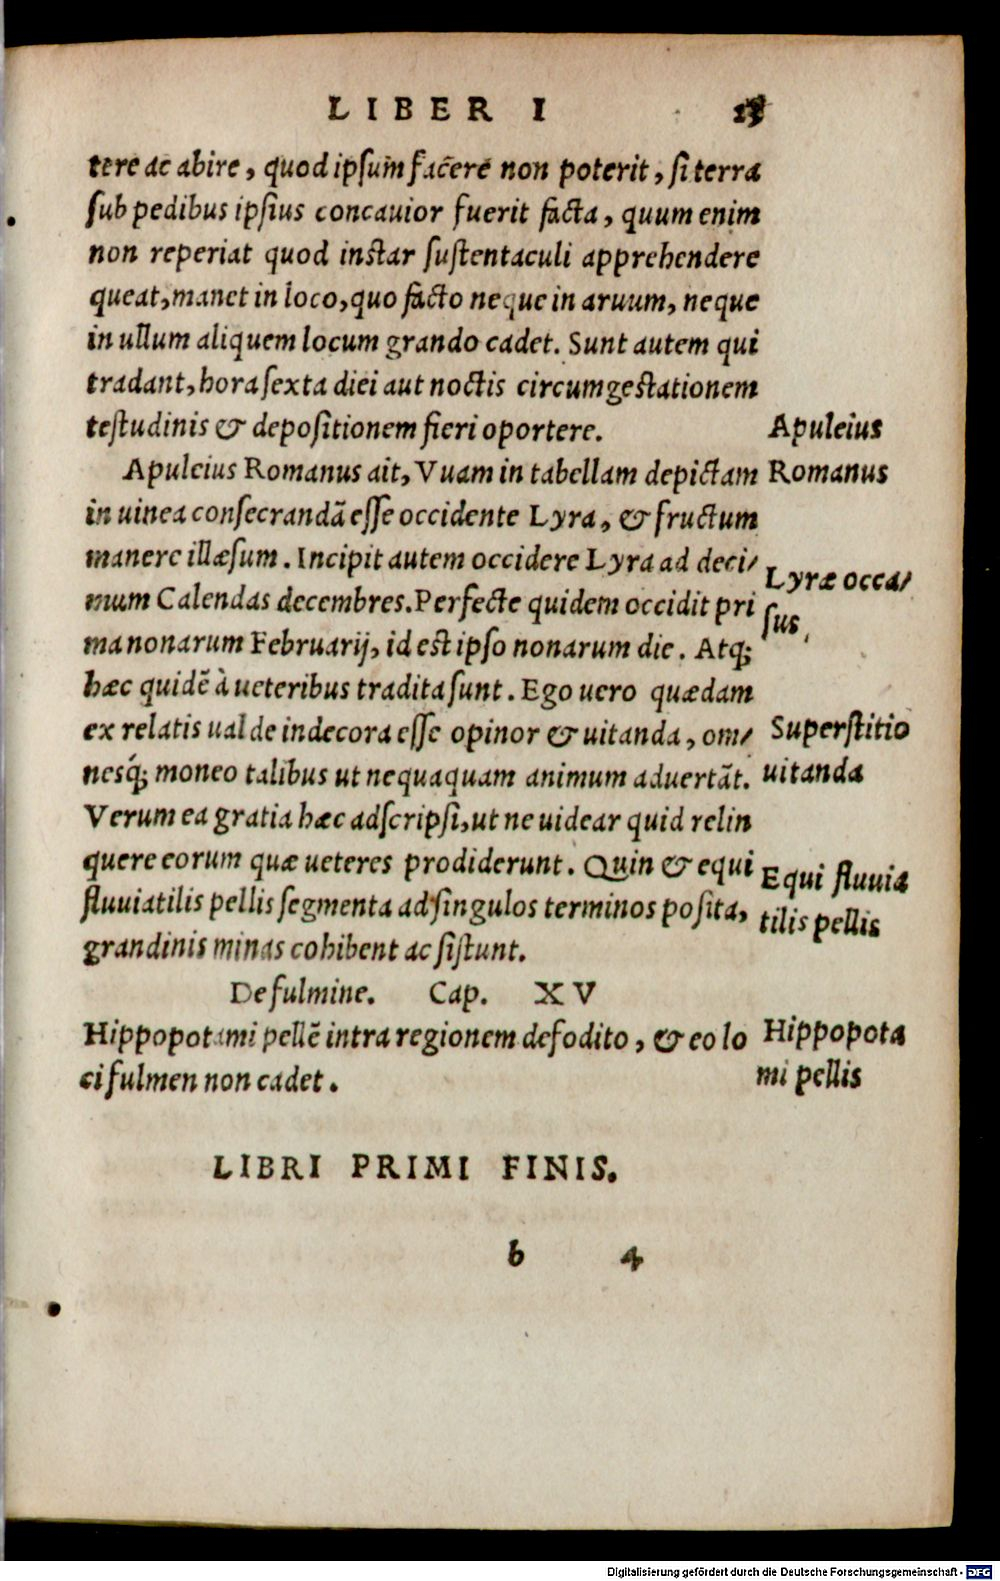 LIBER I
tere ac abire, quod ipsum facere non poterit, si terra
sub pedibus ipsius concauior fuerit facta, quum enim
non reperiat quod instar sustentaculi apprehendere
queat, manet in loco, quo facto neque in aruum, neque
in ullum aliquem locum grando cadet. Sunt autem qui
tradant, hora sexta diei aut noctis circumgestationem
testudinis & depositionem fieri oportere.
Apuleius
Apuleius Romanus ait, Vuam in tabellam depictam
Romanus
in uinea consecrandã esse occidente Lyra, & fructum
manere illæsum. Incipit autem occidere Lyra ad deci/
Lyræ occa/
mum Calendas decembres. Perfecte quidem occidit pri
sus,
ma nonarum Februarij, id est ipso nonarum die. Atq;
hæc quidẽ à ueteribus tradita sunt. Ego uero quædam
ex relatis ualde indecora esse opinor & uitanda, om/
Superstitio
nesq́; moneo talibus ut nequaquam animum aduertãt.
uitanda
Verum ea gratia hæc adscripsi, ut ne uidear quid relin
quere eorum quæ ueteres prodiderunt. Quin & equi
Equi fluuia
fluuiatilis pellis segmenta ad singulos terminos posita,
tilis pellis
grandinis minas cohibent ac sistunt.
De fulmine. Cap. XV
Hippopotami pellẽ intra regionem defodito, & eo lo
Hippopota
ci fulmen non cadet.
mi pellis
LIBRI PRIMI FINIS.
b 4
Digitalisierung gefördert durch die Deutsche Forschungsgemeinschaft - DFG